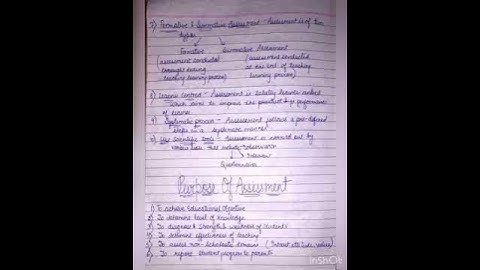 2) Formative & Summative Assessment - Assessment is of two
types
Formative Summative Assessment
(assessment conducted (assessment conducted
throught during at the end of teaching
teaching learning process) learning process)
3) Learner Centred - Assessment is totally learner centred
which aims to improve the performance
of learner
4) Systematic process - Assessment follows a pre-defined
steps in a systematic manner
5) Use Scientific tools - Assessment is carried out by
various tools that include observation
Interview
Questionnaire
Purpose Of Assessment
1) To achieve Educational Objective
2) To determine level of knowledge
3) To diagnose strengths weakness of students
4) To determine effectiveness of teaching
5) To assess non-scholastic domains (Interest, attitude, values)
6) To report student progress to parents
InShOt